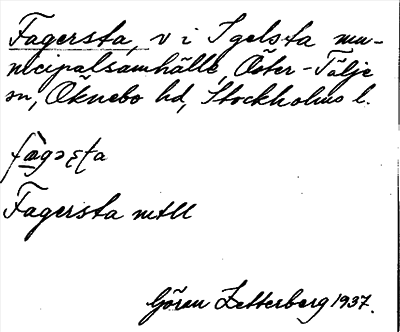 Fagersta, v i Igelsta mu-
nicipalsamhälle, Öster-Tälje
sn, Öknebo hd, Stockholms l.
Fagersta mtll
Göran Zetterberg 1937.